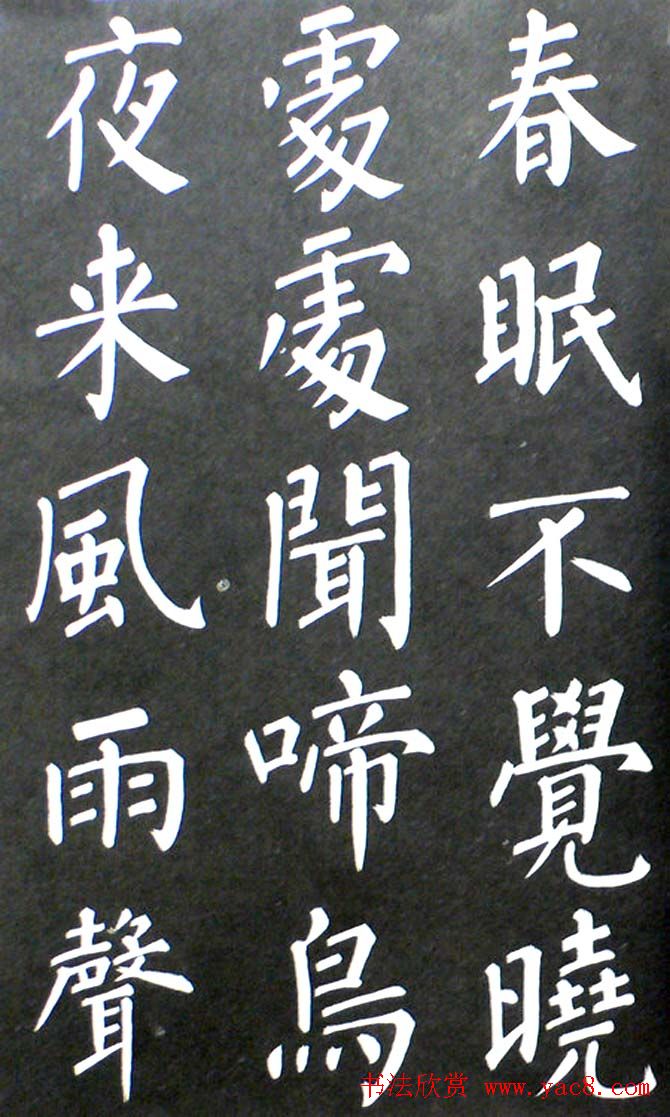 春眠不覺曉
處處聞啼鳥
夜来風雨聲
书法欣赏 www.yac8.com